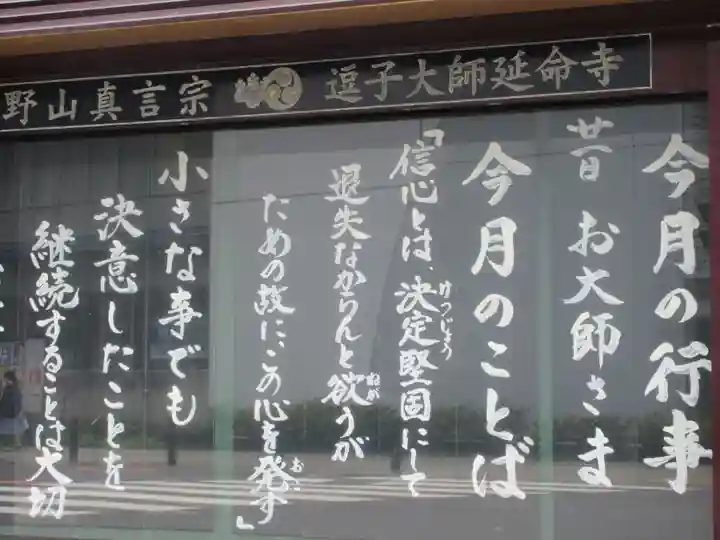 野山真言宗 逗子大師延命寺
今月の行事
昔 お大師さま
今月のことば
「信心とは、決定堅固にして
けつじょう
退失なからんと欲うが
ねが
ための故に、この心を発す」
おこ
小さな事でも
決意したことを
継続することは大切